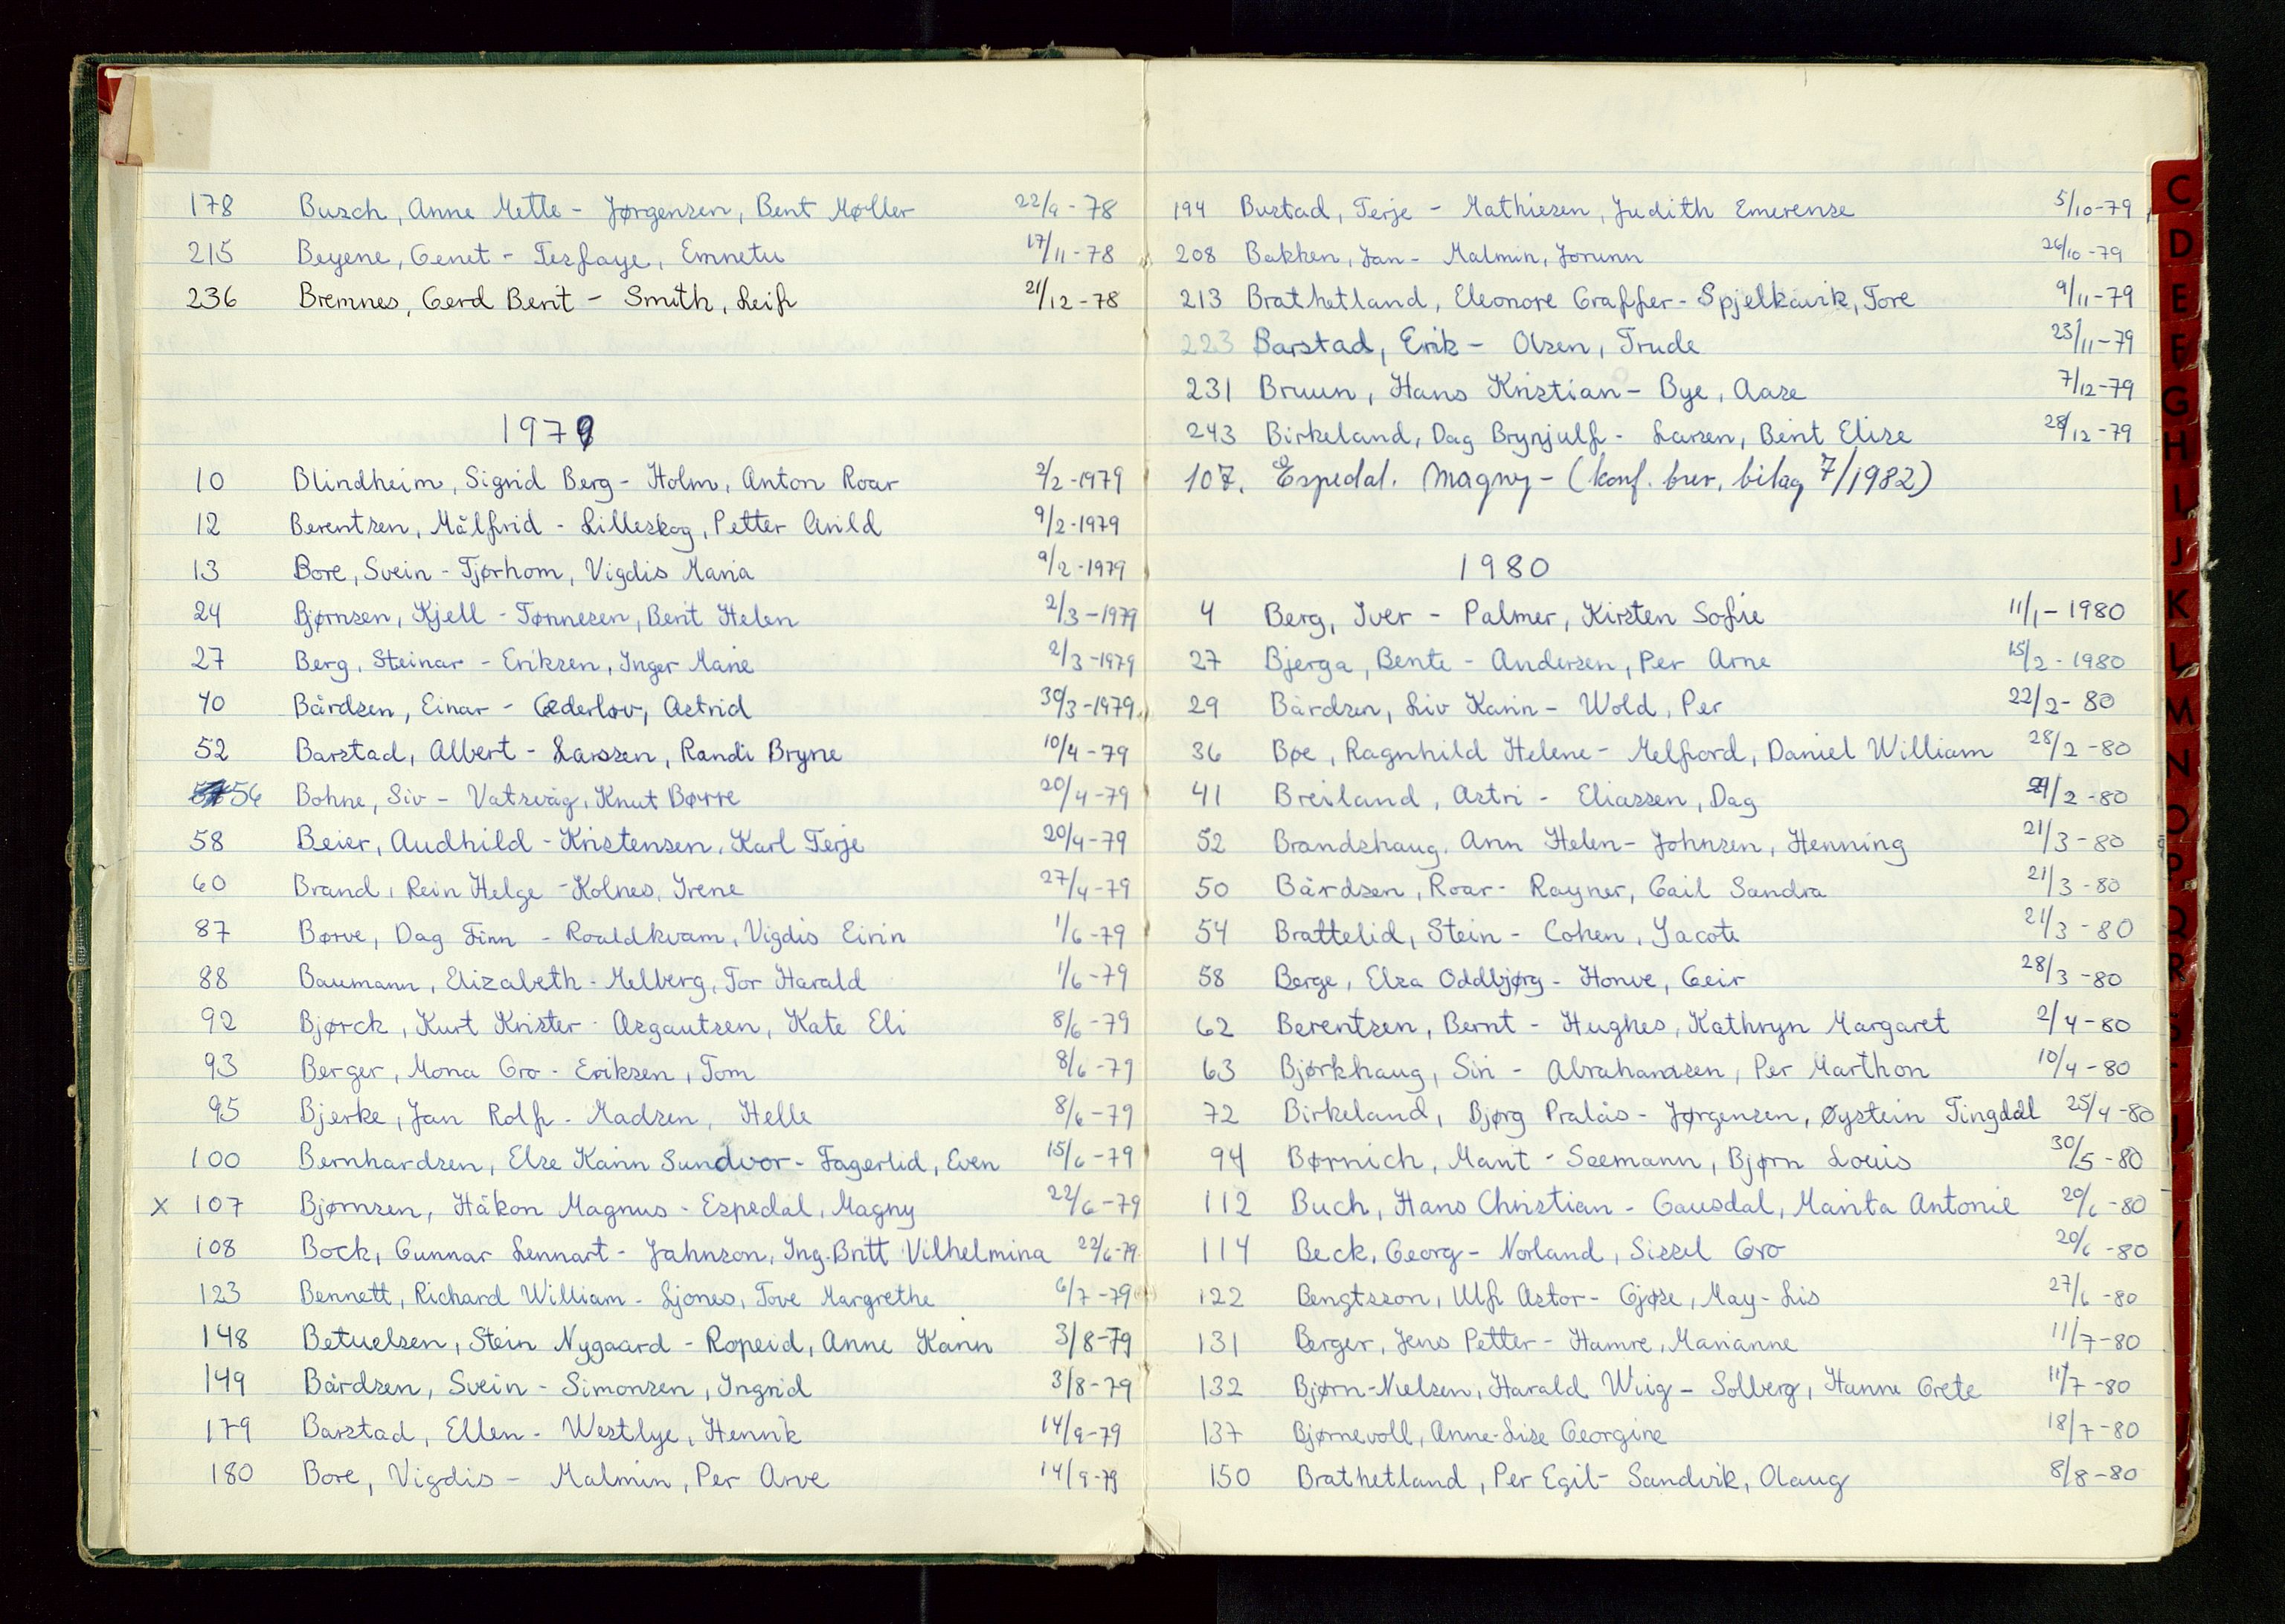 178 Busch, Anne Mette - Jørgensen, Bent Møller 22/9-78
215 Beyene, Genet - Tesfaye, Emnetu 17/11-78
236 Bremnes, Gerd Berit - Smith, Leif 21/12-78
1979
10 Blindheim, Sigrid Berg - Holm, Anton Roar 2/2-1979
12 Berentsen, Målfrid - Lilleskog, Petter Arild 9/2-1979
13 Bore, Svein - Tjørhom, Vigdis Maria 9/2-1979
24 Bjørnsen, Kjell - Tønnesen, Berit Helen 2/3-1979
27 Berg, Steinar - Eriksen, Inger Marie 2/3-1979
40 Bårdsen, Einar - Cederlov, Astrid 30/3-1979
52 Barstad, Albert - Larssen, Randi Bryne 10/4-79
56 Bohne, Siv - Vatsvåg, Knut Børre 20/4-79
58 Beier, Audhild - Kristensen, Karl Terje 20/4-79
60 Brand, Rein Helge - Kolnes, Irene 27/4-79
87 Børve, Dag Finn - Roaldkvam, Vigdis Eirin 1/6-79
88 Baumann, Elizabeth - Melberg, Tor Harald 1/6-79
92 Bjørck, Kurt Krister - Asgautsen, Kate Eli 8/6-79
93 Berger, Mona Gro - Eriksen, Tom 8/6-79
95 Bjerke, Jan Rolf - Madsen, Helle 8/6-79
100 Bernhardsen, Else Karin Sundvor - Fagerlid, Even 15/6-79
x 107 Bjørnsen, Håkon Magnus - Espedal, Magny 22/6-79
108 Bock, Gunnar Lennart - Jahnson, Ing-Britt Vilhelmina 22/6-79
123 Bennett, Richard William - Ljones, Tove Margrethe 6/7-79
148 Betuelsen, Stein Nygaard - Ropeid, Anne Karin 3/8-79
149 Bårdsen, Svein - Simonsen, Ingrid 3/8-79
179 Barstad, Ellen - Westlye, Henrik 14/9-79
180 Bore, Vigdis - Malmin, Per Arve 14/9-79
194 Bustad, Terje - Mathiesen, Judith Emerense 5/10-79
208 Bakken, Jan - Malmin, Jorunn 26/10-79
213 Brathetland, Eleonore Graffer - Spjelkavik, Tore 9/11-79
223 Barstad, Erik - Olsen, Trude 23/11-79
231 Bruun, Hans Kristian - Bye, Aase 7/12-79
243 Birkeland, Dag Brynjulf - Larsen, Berit Elise 28/12-79
107. Espedal, Magny - (konf. brev, bilag 7/1982)
1980
4 Berg, Iver - Palmer, Kirsten Sofie 11/1-1980
27 Bjerga, Bente - Andersen, Per Arne 15/2-1980
29 Bårdsen, Liv Karin - Wold, Per 22/2-80
36 Bøe, Ragnhild Helene - Melfjord, Daniel William 28/2-80
41 Breiland, Astri - Eliassen, Dag 29/2-80
52 Brandshaug, Ann Helen - Johnsen, Henning 21/3-80
50 Bårdsen, Roar - Rayner, Gail Sandra 21/3-80
54 Brattelid, Stein - Cohen, Yacote 21/3-80
58 Berge, Elsa Oddbjørg - Honve, Geir 28/3-80
62 Berentsen, Bernt - Hughes, Kathryn Margaret 2/4-80
63 Bjørkhaug, Siri - Abrahamsen, Per Marthon 10/4-80
72 Birkeland, Bjørg Pralås - Jørgensen, Øystein Tingdal 25/4-80
94 Børnich, Marit - Seemann, Bjørn Louis 30/5-80
112 Buch, Hans Christian - Gausdal, Marita Antonie 20/6-80
114 Beck, Georg - Norland, Sissel Gro 20/6-80
122 Bengtsson, Ulf Astor - Gjøse, May-Lis 27/6-80
131 Berger, Jens Petter - Hamre, Marianne 11/7-80
132 Bjørn-Nielsen, Harald Wiig - Solberg, Hanne Grete 11/7-80
137 Bjørnevoll, Anne-Lise Georgine 18/7-80
150 Brathetland, Per Egil - Sandvik, Olaug 8/8-80
C
D
E
F
G
H
I
J
K
L
M
N
O
P
Q
R
S